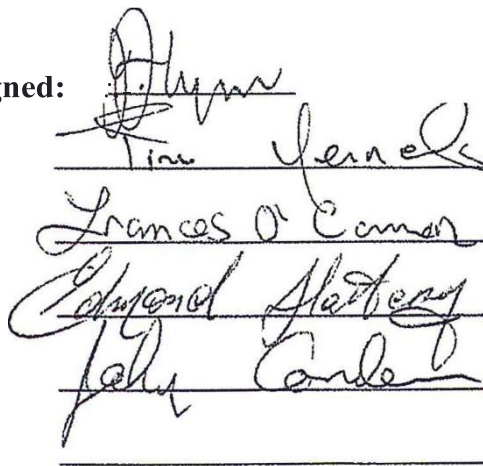 gned: D Flynn
Tim
Frances O'Connor
Edmond Slattery
John Condon